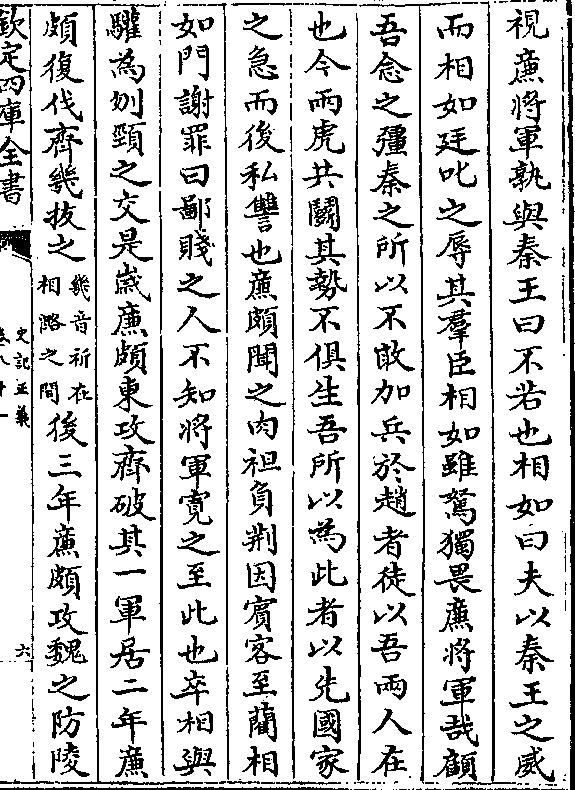 視廉將軍孰與秦王曰不若也相如曰夫以秦王之威
而相如廷叱之辱其羣臣相如雖駑獨畏廉將軍哉顧
吾念之彊秦之所以不敢加兵於趙者徒以吾兩人在
也今兩虎共鬭其勢不俱生吾所以為此者以先國家
之急而後私讐也廉頗聞之肉袒負荆因賓客至藺相
如門謝罪曰鄙賤之人不知將軍寛之至此也卒相與
驩為刎頸之交是歲廉頗東攻齊破其一軍居二年廉
頗復伐齊幾拔之幾音祈在相潞之間後三年廉頗攻魏之防陵
欽定四庫全書
史記正義
卷八十一
六